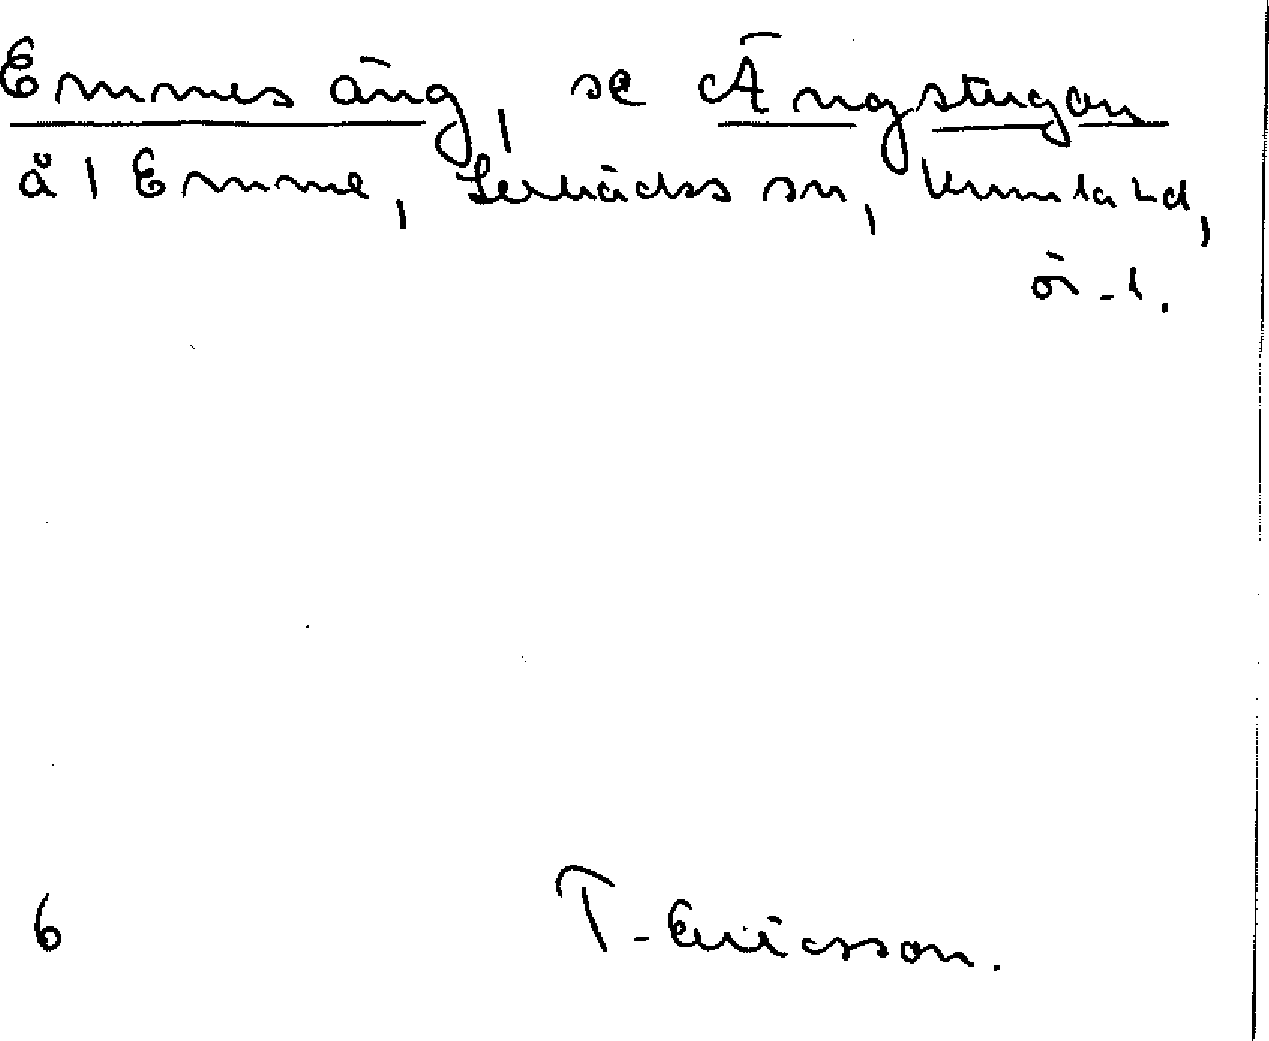 Emmes äng, se Ängstugan
å 1 Emme, Lerbäcks sn, Kumla hd,
ör. l.
6 T. Ericsson.